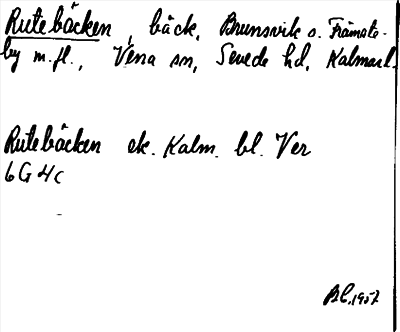 Rutebäcken, bäck, Brunsvik o. Främste-
by m.fl., Vena sn, Sevede hd, Kalmar l.
Rutebäcken ek. Kalm. bl. Ver
6G 4c